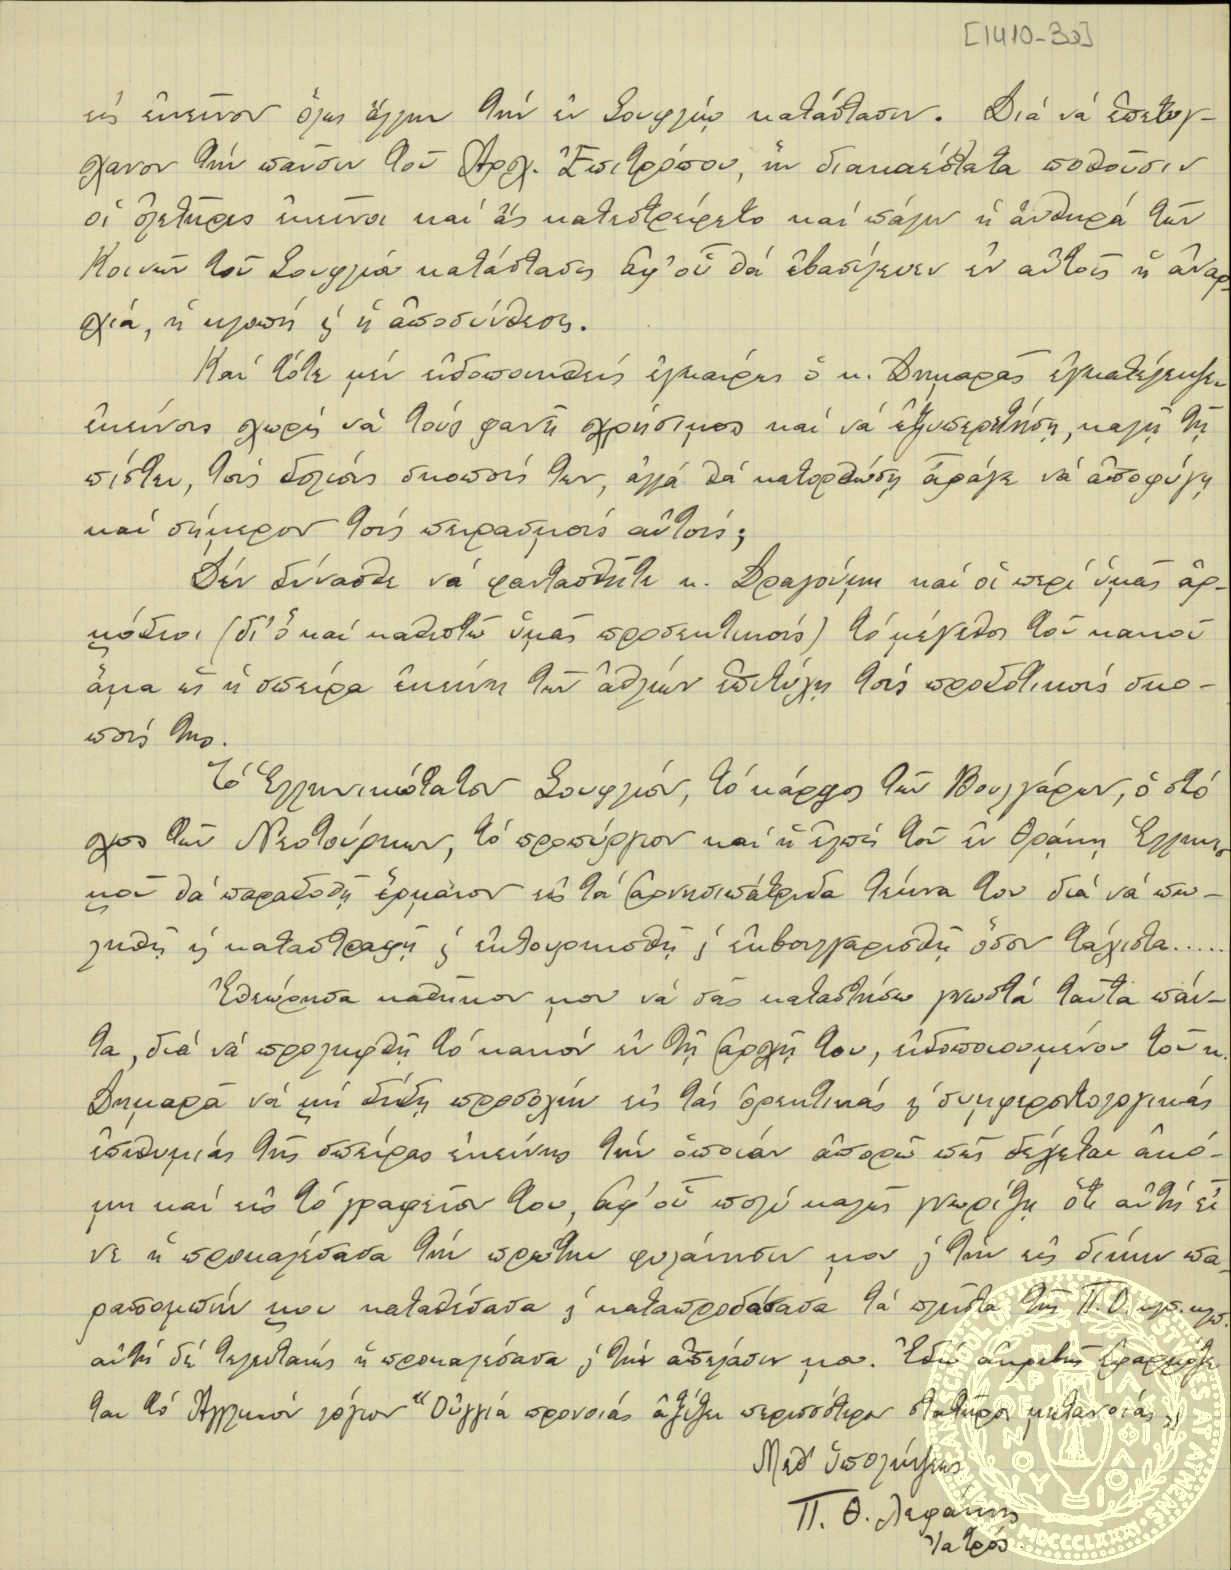 [1410-30]
εἰς ἐκεῖνον ὅλως ἄλλην τήν ἐν Σουφλίῳ κατάστασιν. Διά νά ἐπετύγ-
χανον τήν παῦσιν τοῦ Ἀρχ. Ἐπιτρόπου, ἥν διακαέστατα ποθοῦσιν
οἱ ὀλετῆρες ἐκεῖνοι καί ἄς κατεστρέφετο καί πάλιν ἡ ἀνθηρά τῶν
Κοινῶν τοῦ Σουφλίου κατάστασις ἀφ' οὗ θά ἐβασίλευεν ἐν αὐτοῖς ἡ ἀναρ-
χία, ἡ κλοπή ϗ ἡ ἀποσύνθεσις.
Καί τότε μέν εἰδοποιηθείς ἐγκαίρως ὁ κ. Δημαρᾶς ἐγκατέλειψεν
ἐκείνους χωρίς νά τούς φανῇ χρήσιμος καί νά ἐξυπερετήσῃ, καλῇ τῇ
πίστει, τούς δολίους σκοπούς των, ἀλλά θά κατορθώσῃ ἆράγε νά ἀποφύγῃ
καί σήμερον τούς πειρασμούς αὐτούς;
Δέν δύνασθε νά φαντασθῆτε κ. Δραγούμη καί οἱ περί ὑμᾶς ἁρ-
μόδιοι (δι' ὅ καί καθιστῶ ὑμᾶς προσεκτικούς) τό μέγεθος τοῦ κακοῦ
ἅμα ὡς ἡ σπεῖρα ἐκείνη τῶν ἀθλίων ἐπιτύχῃ τούς προδοτικούς σκο-
πούς της.
Τό Ἑλληνικώτατον Σουφλίον, τό κάρφος τῶν Βουλγάρων, ὁ στό
χος τῶν Νεοτούρκων, τό προπύργιον καί ἡ ἐλπίς τοῦ ἐν Θράκῃ Ἑλληνισ
μοῦ θά παραδοθῇ ἕρμαιον εἰς τά ἀρνησιπάτριδα τέκνα του διά νά πω-
ληθῇ ϗ καταστραφῇ ϗ ἐκτουρκισθῇ ϗ ἐκβουλγαρισθῇ ὅσον τάχιστα.....
Ἐθεώρησα καθῆκον μου νά σᾶς καταστήσω γνωστά ταῦτα πάν-
τα, διά νά προληφθῇ τό κακόν ἐν τῇ ἀρχῇ του, εἰδοποιουμένου τοῦ κ.
Δημαρᾶ νά μή δίδῃ προσοχήν εἰς τάς ὀρεκτικάς ϗ συμφεροντολογικάς
ἐπιθυμίας τῆς σπείρας ἐκείνης τήν ὁποίαν ἀπορῶ πῶς δέχεται ἀκό-
μη καί εἰς τό γραφεῖον του, ἀφ' οὗ πολύ καλῶς γνωρίζῃ ὅτι αὐτή εἶ
νε ἡ προκαλέσασα τήν πρώτην φυλάκισιν μου ϗ τήν εἰς δίκην πα-
ραπομπήν μου καταθέσασα ϗ καταπροδώσασα τά πλεῖστα τῆς Π.Ο. κλπ. κλπ.
αὐτή δέ τελευταίως ἡ προκαλέσασα ϗ τήν ἀπέλασιν μου. Ἐδῶ ἀκριβῶς ἐφαρμόζε
ται τό Ἀγγλικόν λόγιον "Οὐγγιά προνοίας ἀξίζει περισσότερον στατῆρος μετανοίας"
Μεθ' ὑπολήψεως
Π. Θ.
Ἰατρός.
MDCCCLXXXI